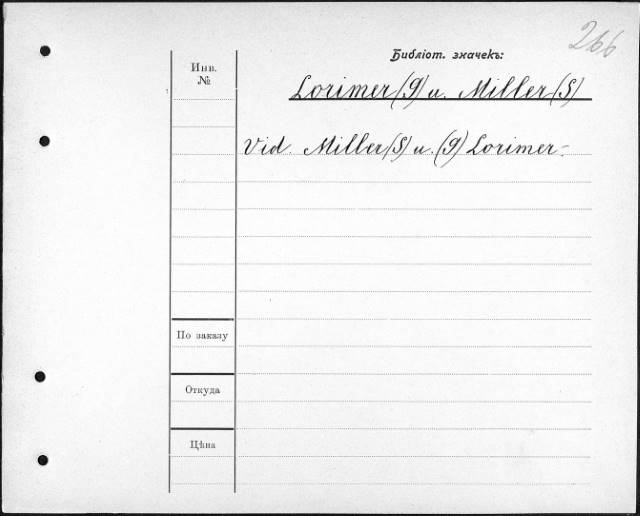 266
Библіот. значекъ:
Инв.
№
Lorimer (G) u. Miller (S)
Vid. Miller (S) u. (G) Lorimer -
По заказу
Откуда
Цѣна